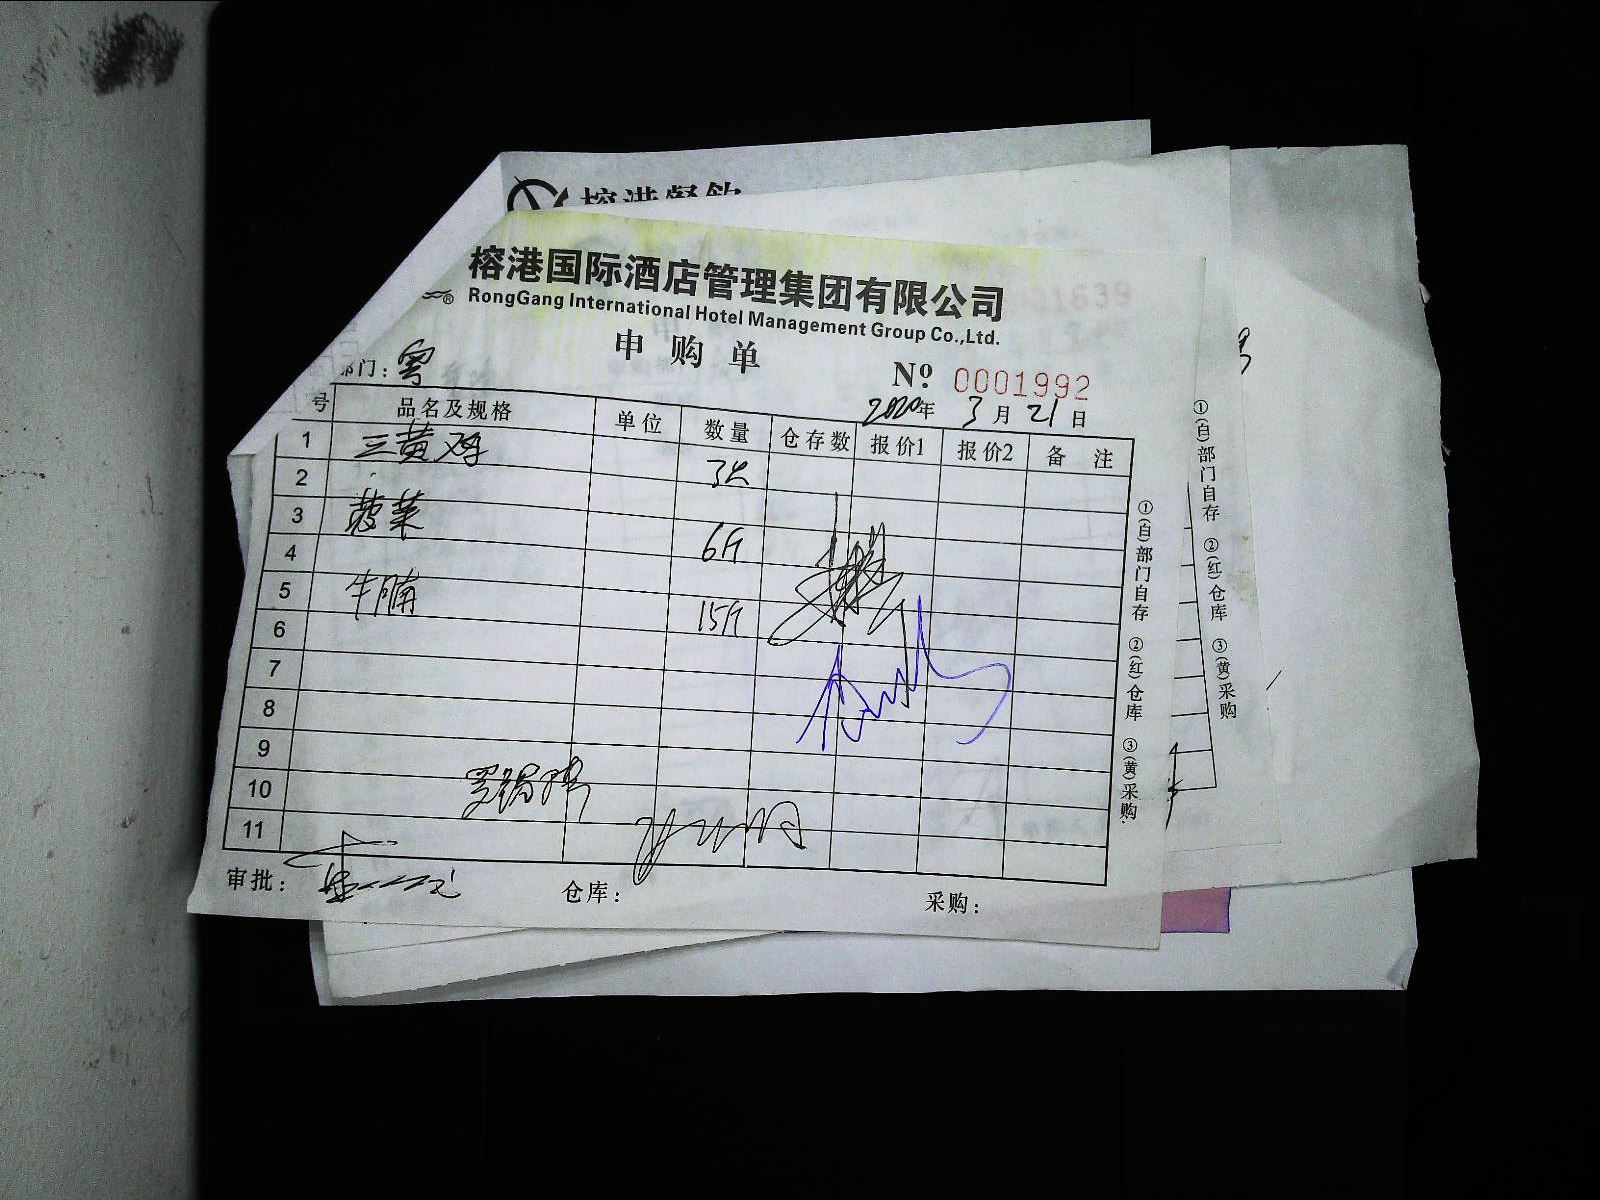 榕港餐饮
榕港国际酒店管理集团有限公司
®
RongGang International Hotel Management Group Co.,Ltd.
申购单
001639
部门：
Nº 0001992
2020年 3月21日
号 品名及规格 单位 数量 仓存数 报价1 报价2 备 注
1 三黄鸡
2 3只
3 菠菜
4 6斤
5 牛腩
6 15斤
7
8
9
10
11
审批： 仓库： 采购：
①(白)部门自存 ②(红)仓库 ③(黄)采购
①(白)部门自存 ②(红)仓库 ③(黄)采购